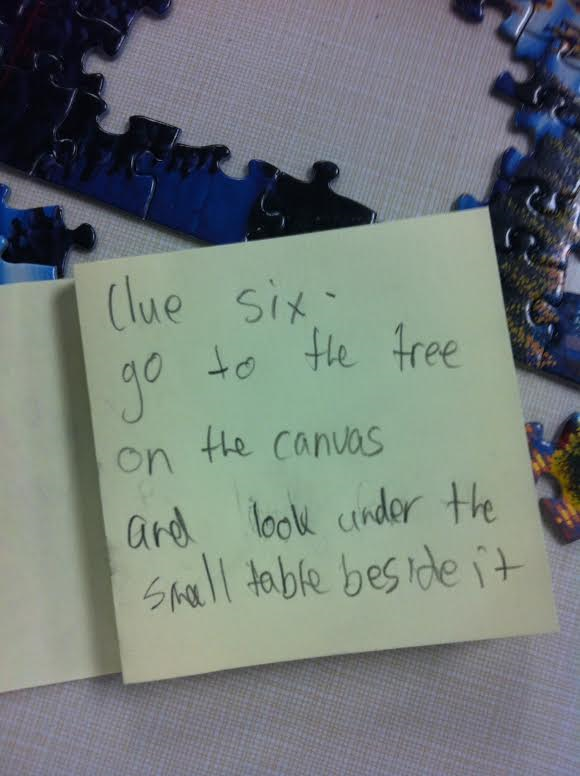 Clue six-
go to the tree
on the canvas
and look under the
small table beside it